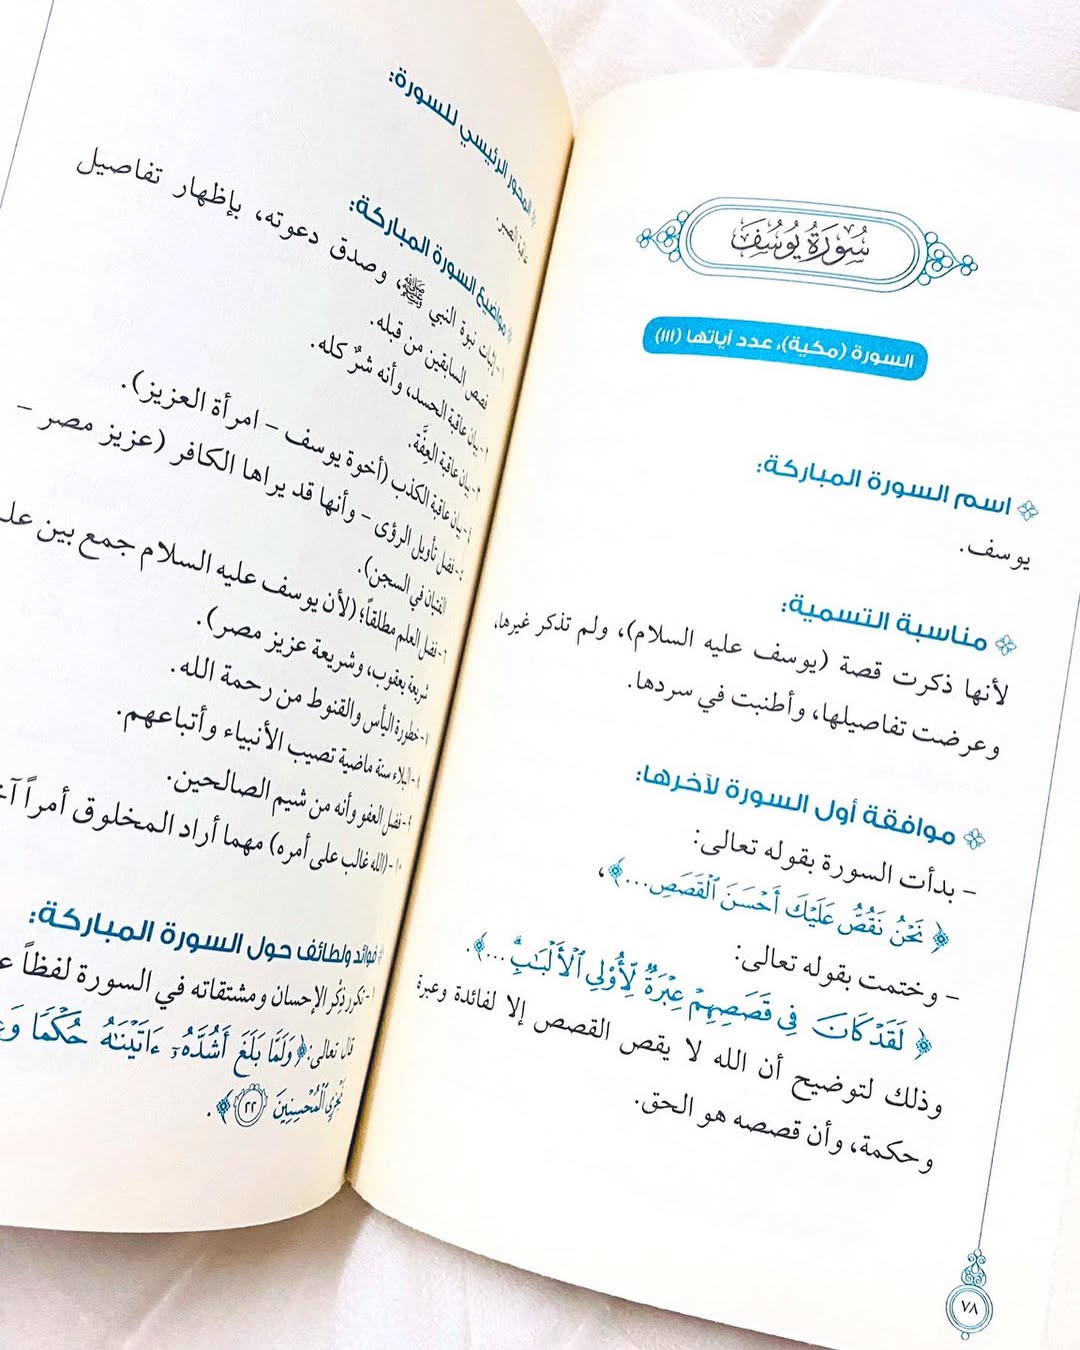 سُورَةُ يُوسُفَ
السورة (مكية)، عدد آياتها (١١١)
اسم السورة المباركة:
يوسف.
مناسبة التسمية:
لأنها ذكرت قصة (يوسف عليه السلام)، ولم تذكر غيرها،
وعرضت تفاصيلها، وأطنبت في سردها.
موافقة أول السورة لآخرها:
- بدأت السورة بقوله تعالى:
﴿ نَحْنُ نَقُصُّ عَلَيْكَ أَحْسَنَ ٱلْقَصَصِ...﴾،
- وختمت بقوله تعالى:
﴿ لَقَدْ كَانَ فِي قَصَصِهِمْ عِبْرَةٌ لِّأُوْلِي ٱلْأَلْبَٰبِۗ...﴾.
وذلك لتوضيح أن الله لا يقص القصص إلا لفائدة وعبرة
وحكمة، وأن قصصه هو الحق.
٧٨
المحور الرئيسي للسورة:
عاقبة الصبر.
مواضيع السورة المباركة:
١- إثبات نبوة النبي ﷺ، وصدق دعوته، بإظهار تفاصيل
قصص السابقين من قبله.
٢- بيان عاقبة الحسد، وأنه شرٌ كله.
٣- بيان عاقبة العِفَّة.
٤- بيان عاقبة الكذب (أخوة يوسف - امرأة العزيز).
٥- فضل تأويل الرؤى - وأنها قد يراها الكافر (عزيز مصر -
الفتيان في السجن).
٦- فضل العلم مطلقاً؛ (لأن يوسف عليه السلام جمع بين
شريعة يعقوب، وشريعة عزيز مصر).
٧- خطورة اليأس والقنوط من رحمة الله.
٨- البلاء سنة ماضية تصيب الأنبياء وأتباعهم.
٩- فضل العفو وأنه من شيم الصالحين.
١٠- (الله غالب على أمره) مهما أراد المخلوق أمراً
فوائد ولطائف حول السورة المباركة:
١- تكرر ذِكْر الإحسان ومشتقاته في السورة لفظاً
قال تعالى: ﴿وَلَمَّا بَلَغَ أَشُدَّهُۥٓ ءَاتَيْنَٰهُ حُكْمًا
نَجْزِي ٱلْمُحْسِنِينَ ٢٢﴾.